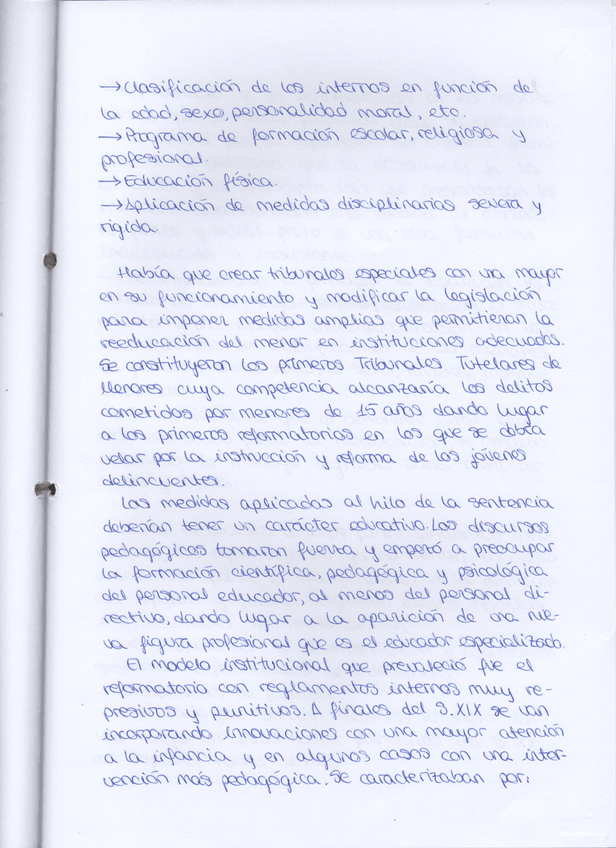 →Clasificación de los internos en función de
la edad, sexo, personalidad moral, etc.
→Programa de formación escolar, religiosa y
profesional.
→Educación física.
→Aplicación de medidas disciplinarias severa y
rígida.
Había que crear tribunales especiales con una mayor
en su funcionamiento y modificar la legislación
para imponer medidas amplias que permitieran la
reeducación del menor en instituciones adecuadas.
Se constituyeron los primeros Tribunales Tutelares de
Menores cuya competencia alcanzaría los delitos
cometidos por menores de 15 años dando lugar
a los primeros reformatorios en los que se debía
velar por la instrucción y reforma de los jóvenes
delincuentes.
Las medidas aplicadas al hilo de la sentencia
deberían tener un carácter educativo. Los discursos
pedagógicos tomaron fuerza y empezó a preocupar
la formación científica, pedagógica y psicológica
del personal educador, al menos del personal di-
rectivo, dando lugar a la aparición de una nue-
va figura profesional que es el educador especializado.
El modelo institucional que prevaleció fue el
reformatorio con reglamentos internos muy re-
presivos y punitivos. A finales del S.XIX se van
incorporando innovaciones con una mayor atención
a la infancia y en algunos casos con una inter-
vención más pedagógica. Se caracterizaban por: